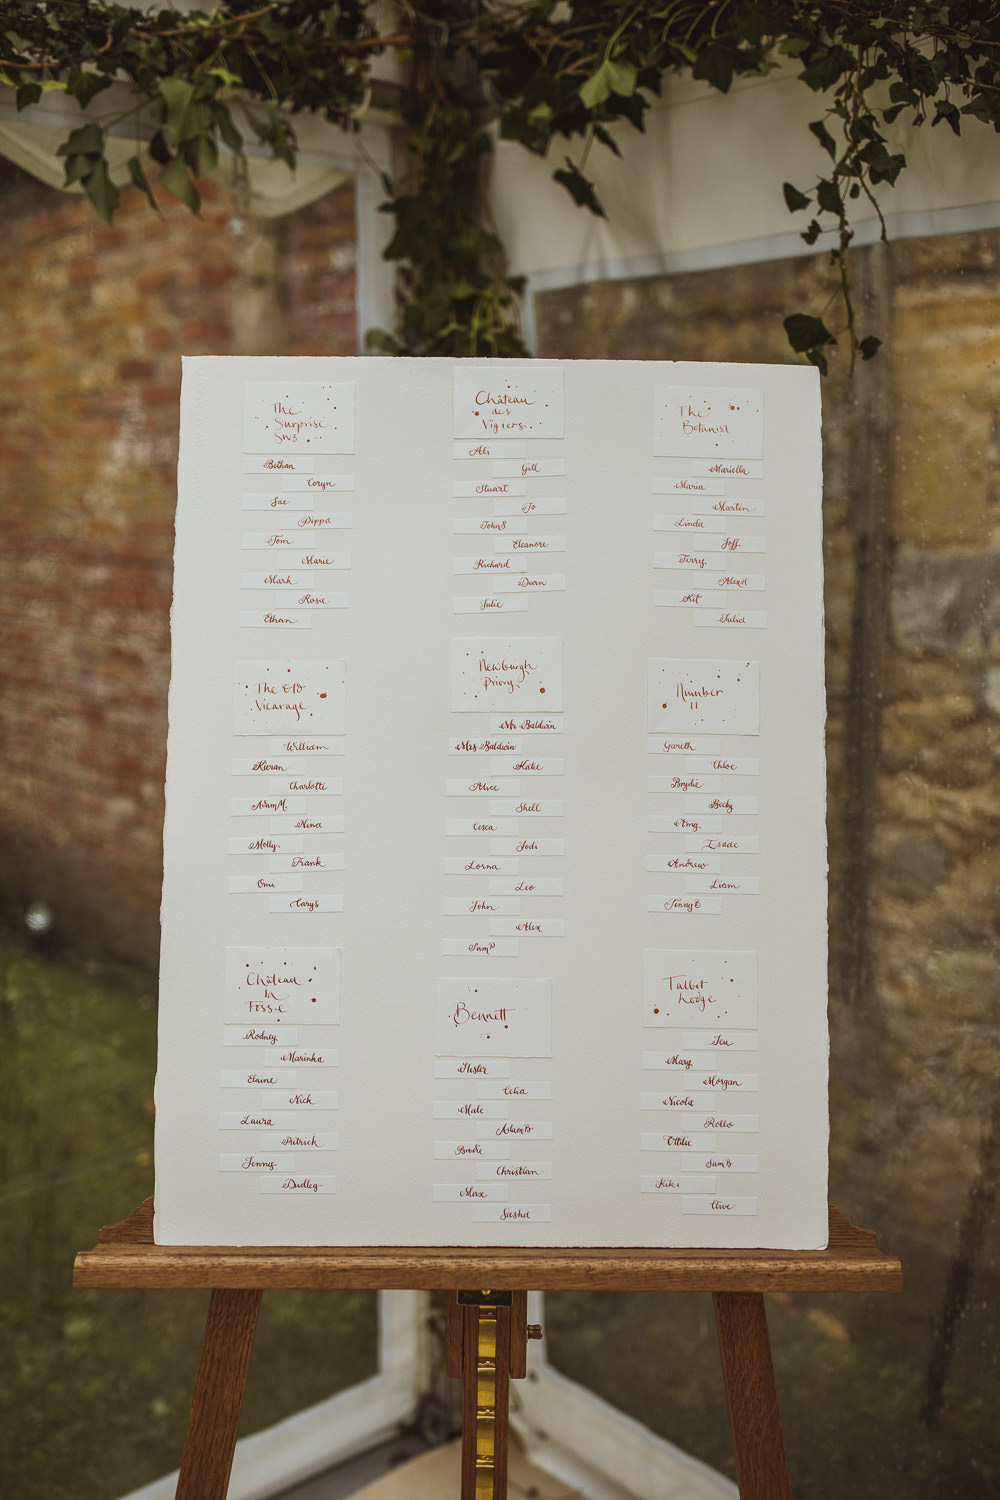 The
Surprise
Bethan
Coryn
Sae
Pippa
Tom
Marie
Mark
Rosie
Ethan
Château
des
Vigiers
Ali
Gill
Stuart
Jo
JohnS
Eleanore
Richard
Dian
Julie
The
Botanist
Mariella
Maria
Martin
Linda
Joff
Terry
AlexH
Kit
The Old
Vicarage
William
Kieran
Charlotte
AdamM.
Nina
Molly
Frank
Omi
Carys
Newburgh
Priory
Mr Baldwin
Mrs Baldwin
Katie
Alice
Shell
Cesca
Jodi
Lorna
Leo
John
Alex
SamP
Number
11
Gareth
Chloe
Brydie
Becky
Amy
Isaac
Andrew
Liam
Château
In
Fosse
Rodney
Marinka
Elaine
Nick
Laura
Patrick
Jenny
Dudley
Bennett
Hester
Celia
AdamB
Brodie
Christian
Max
Talbot
Lodge
Mary
Morgan
Nicola
Rollo
Ottilie
SamB
Kiki
Clive